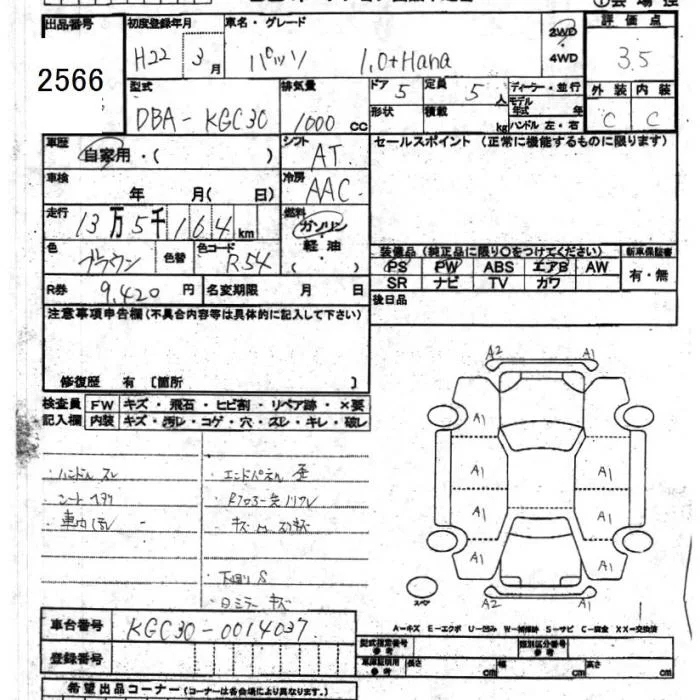 出品番号 初度登録年月 車名・グレード 2WD 評価点
2566 H22 3月 パッソ 1.0+Hana 4WD 3.5
型式 排気量 ドア 5 定員 5人 ディーラー・並行 外装 内装
DBA-KGC30 1000cc 形状 積載 kg モデル年式 年 ハンドル 左・右 C C
車歴 シフト セールスポイント (正常に機能するものに限ります)
自家用・( ) AT
車検 冷房
年 月( 日) AAC
走行 燃料
13万5千164km ガソリン
色 色替 色コード 軽油 装備品 (純正品に限り○をつけてください) 新車保証書
ブラウン R54 ( ) PS PW ABS エアB AW 有・無
R券 9,420円 名変期限 月 日 SR ナビ TV カワ
注意事項申告欄(不具合内容等は具体的に記入して下さい) 後日品
修復歴 有 [箇所 ]
検査員 FW キズ・飛石・ヒビ割・リペア跡・×要
記入欄 内装 キズ・汚レ・コゲ・穴・スレ・キレ・破レ
・ハンドル スレ
・シート ヘタリ
・車内 汚レ
・下回り S
・ミラー キズ
A2 A1
A1
A1 A1
A1 A1
A1 A1
A2 A1
スペア
A-キズ E-エクボ U-凹み W-補修跡 S-サビ C-腐食 XX-交換済
車台番号 KGC30-0014037
型式指定番号 参考 類別区分番号 参考
登録番号
車庫証明用 参考 長さ cm 幅 cm 高さ cm
希望出品コーナー (コーナーは各会場により異なります。)